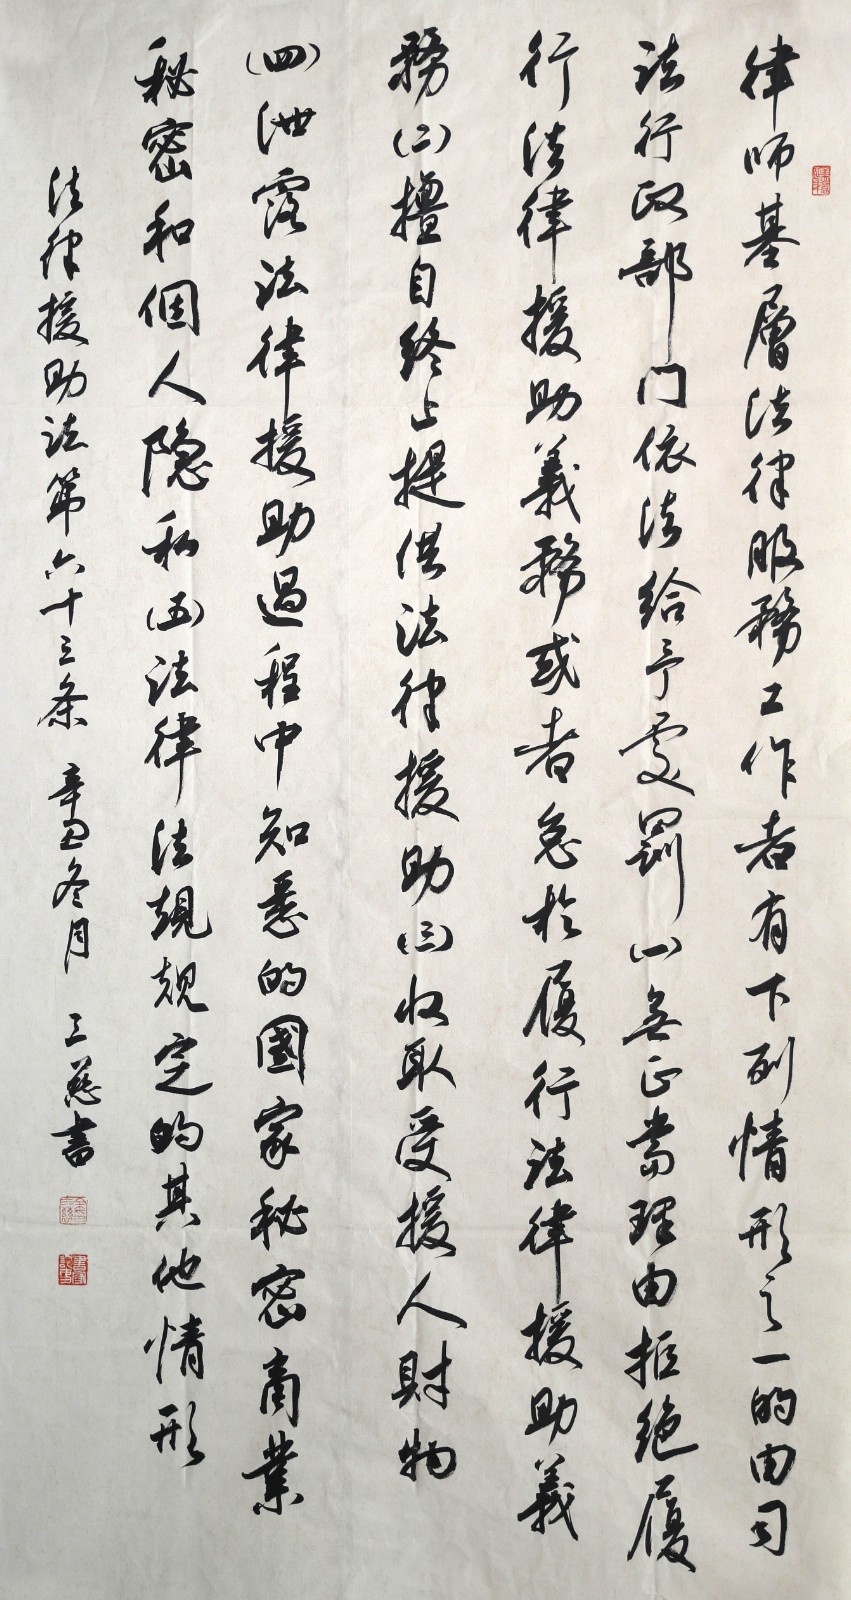 律师基層法律服務工作者有下列情形之一的由司
法行政部门依法给予處罰(一)無正當理由拒绝履
行法律援助義務或者怠於履行法律援助義
務(二)擅自终止提供法律援助(三)收取受援人財物
(四)泄露法律援助過程中知悉的國家秘密商業
秘密和個人隐私(五)法律法規規定的其他情形
法律援助法第六十三条 辛丑冬月 三慈書